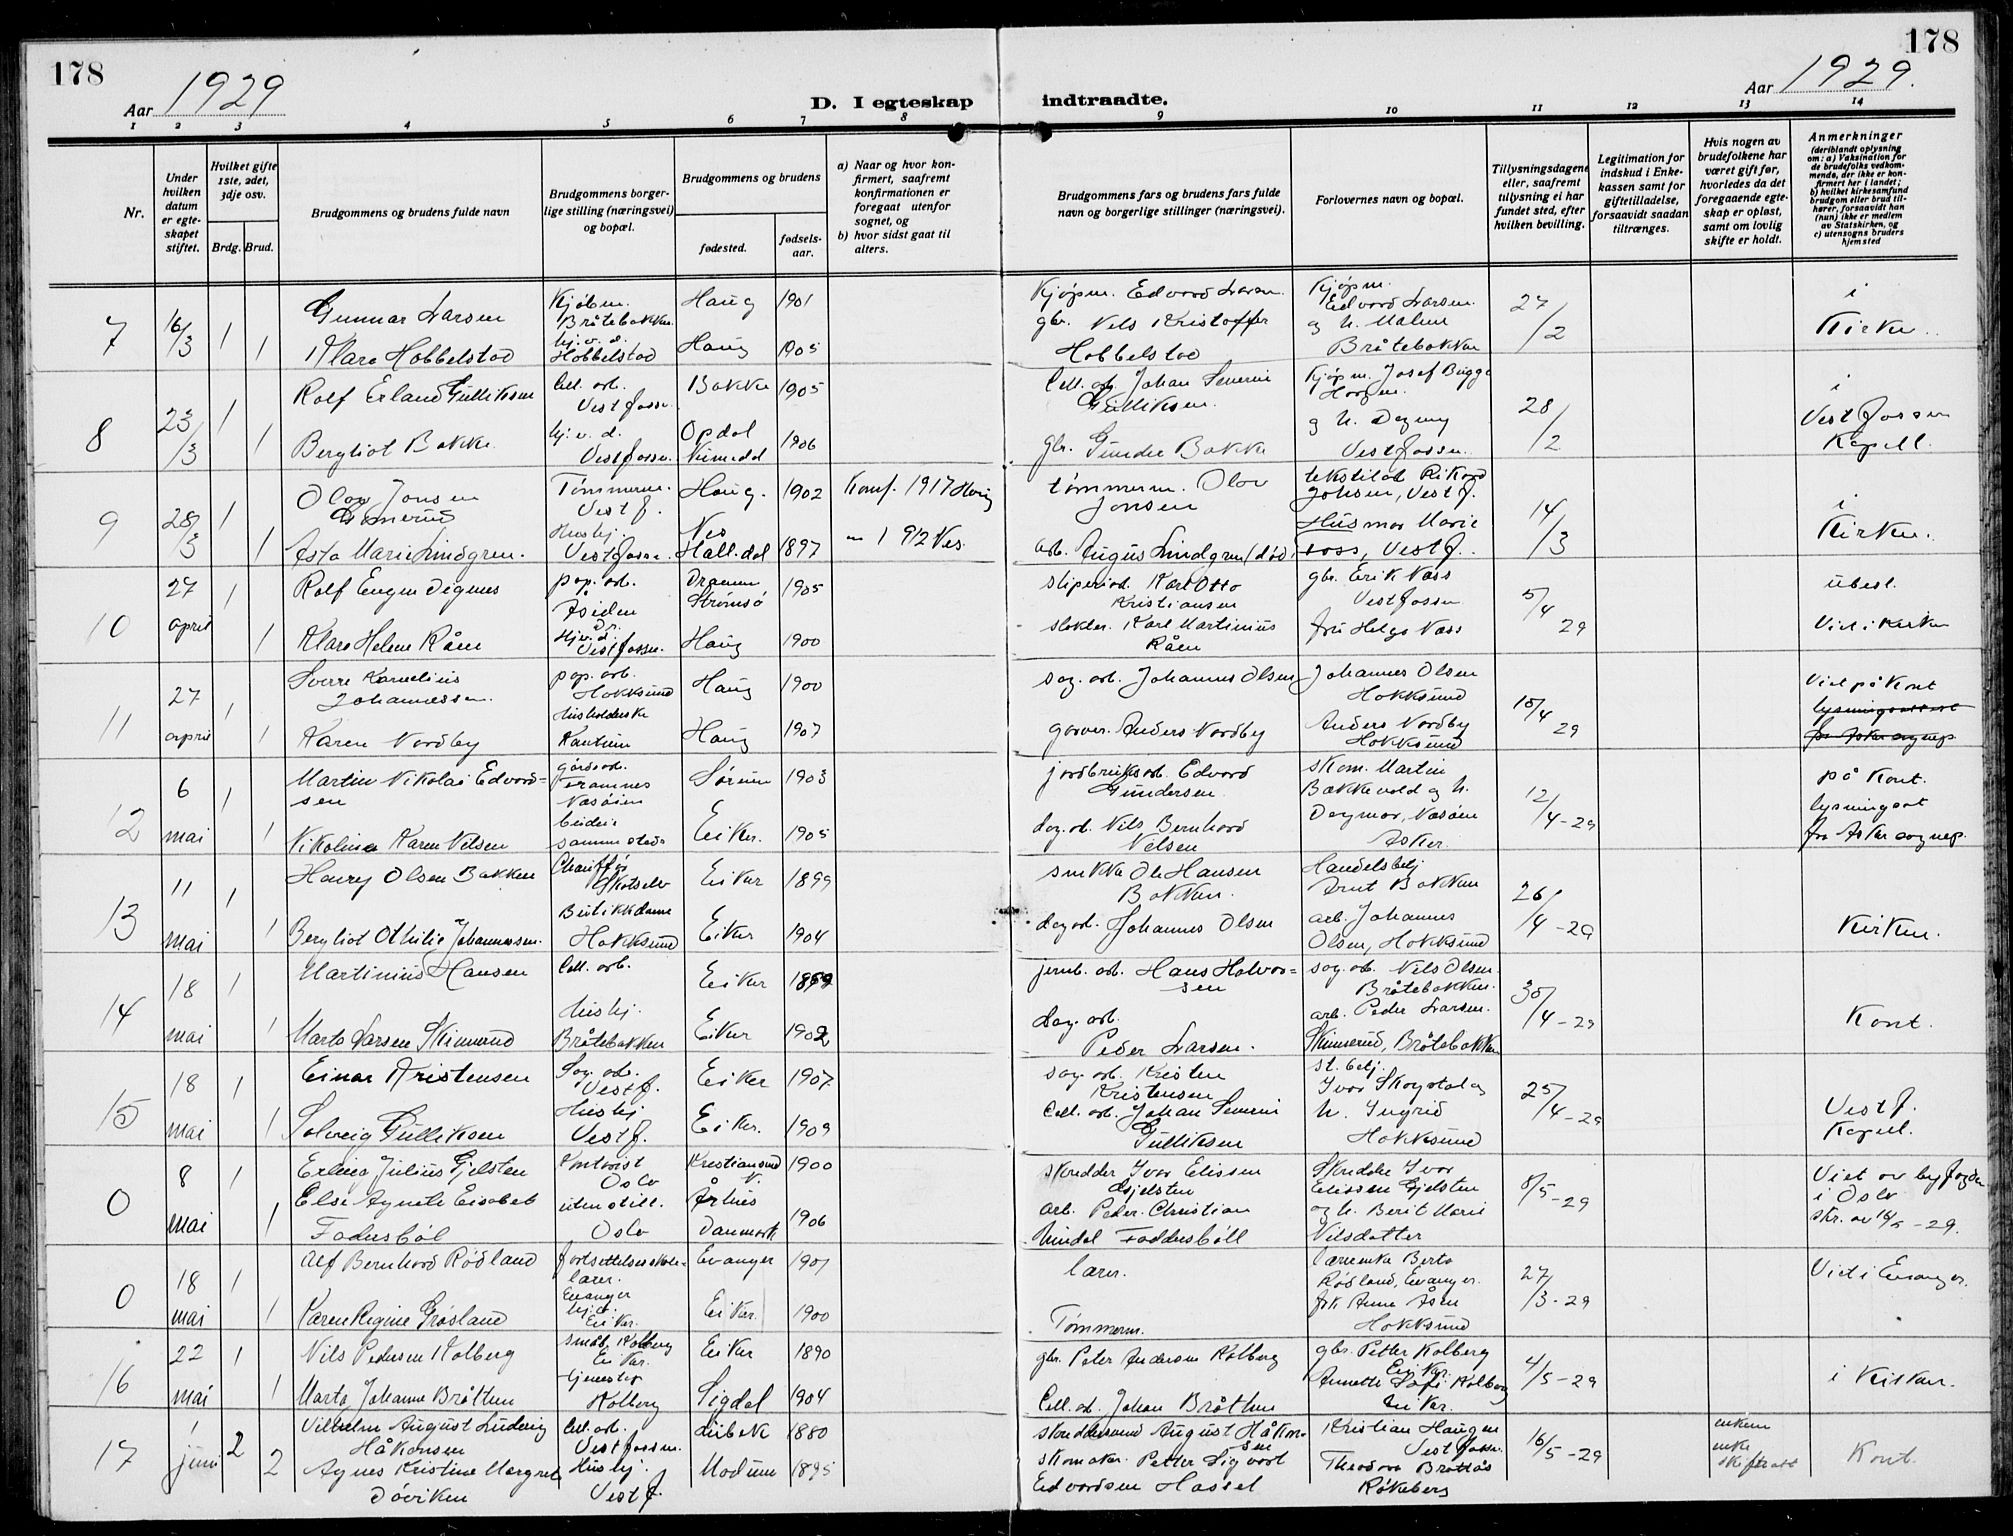 178
178
Aar 1929
D. I egteskap indtraadte.
Aar 1929.
1 2 3 4 5 6 7 8 9 10 11 12 13 14
Nr.
Under hvilken datum er egteskapet stiftet.
Hvilket gifte 1ste, 2det, 3dje osv.
Brdg. Brud.
Brudgommens og brudens fulde navn
Brudgommens borgerlige stilling (næringsvei) og bopæl.
Brudgommens og brudens
fødested.
fødselsaar.
a) Naar og hvor konfirmert, saafremt konfirmationen er foregaat utenfor sognet, og
b) hvor sidst gaat til alters.
Brudgommens fars og brudens fars fulde navn og borgerlige stillinger (næringsvei).
Forlovernes navn og bopæl.
Tillysningsdagene eller, saafremt tillysning ei har fundet sted, efter hvilken bevilling.
Legitimation for indskud i Enkekassen samt for giftetilladelse, forsaavidt saadan tiltrænges.
Hvis nogen av brudefolkene har været gift før, hvorledes da det foregaaende egteskap er opløst, samt om lovlig skifte er holdt.
Anmerkninger
(deriblandt oplysning om: a) Vaksination for de brudefolks vedkommende, der ikke er konfirmert her i landet; b) hvilket kirkesamfund brudgom eller brud tilhører, forsaavidt han (hun) ikke er medlem av Statskirken, og c) utensogns bruders hjemsted
7 16/3 1 Gunnar Larsen Kjøbm. Bråtebakken Haug 1901 Kjøpm. Edvard Larsen Kjøpm. Edvard Larsen 27/2 i Kirken.
1 Klara Hobbelstad hj.v.d. Hobbelstad Haug 1905 gbr. Nils Kristoffer Hobbelstad og h. Malene Bråtebakken
8 23/3 1 Rolf Erland Gulliksen Cell. arb. Vestfossen Bakke 1905 Cell. arb. Johan Severin Gulliksen. Kjøpm. Josef Bugge 28/2 i Vestfossen Kapell.
1 Bergliot Bakke hj.v.d. Vestfossen. Opdal Numedal 1906 gbr. Gunder Bakke og h. Dagny Vestfossen.
9 28/3 1 Olav Jonsen Tømmerm. Vestf. Haug. 1902 Konf. 1917 Haug tømmerm. Olav Jonsen tekstilarb. Rikard Johsen, Vestf. 14/3 i Kirken.
1 Asta Marie Lindgren. Hushj. Vestfossen Nes Hall.dal 1897 " 1912 Nes. arb. August Lindgren (død) Husmor Marie Foss, Vestf.
10 27 april 1 Rolf Eugen Degnes pap. arb. Åsiden Dramm Strømsø 1905 sliperiarb. Karl Otto Kristiansen gbr. Erik Næss Vestfossen 5/4 29 ubest.
1 Klara Helene Råen Hj.v.d. Vestfossen. Haug 1900 slakter. Karl Martinius Råen fru Helga Næss Viet i kirken
11 27 april 1 Sverre Kornelius Johannessen. pap. arb. Hokksund Haug 1900 sag. arb. Johannes Olsen Johannes Olsen Hokksund 15/4 29 Viet på kont
1 Karen Nordby husholderske Haug 1907 garver. Anders Nordby Anders Nordby Hokksund lysningsattest fra Asker sognep.
12 6 mai 1 Martin Nikolai Edvardsen gårdsarb. Nesøien Sørum 1903 jordbruksarb. Edvard Gundersen. skom. Martin Bakkevold og h. 12/4-29 på kont. lysningsat
1 Nikoline Karen Nilsen samme sted. Eiker. 1905 dag. arb. Nils Bernhard Nilsen Dagmar, Nesøen Asker. fra Asker sognep.
13 11 mai 1 Henry Olsen Bakken Chauffør Skotselv Eiker 1899 smed Ole Hansen Bakken. Handelsbetj. Arnt Bakken 26/4-29
1 Bergliot Othilie Johannessen. Butikkdame Hokksund Eiker 1904 dag arb. Johannes Olsen arb. Johannes Olsen, Hokksund Kirken.
14 18 mai 1 Martinius Hansen Cell. arb. Eiker jernb. arb. Hans Halvorsen sag. arb. Nils Olsen. Bråtebakken. 30/4-29
1 Marta Larsen Skinnerud hushj. Bråtebakken Eiker 1902 dag. arb. Peder Larsen. arb. Peder Larsen. Skinnerud, Bråtebakken Kont.
15 18 mai 1 Einar Kristensen Sag. arb. Vestf. Eiker 1907 sag. arb. Kristen Kristensen st. betj. Ivar Skogstad og 25/4-29
1 Solveig Gulliksen Hushj Vestf. Eiker. 1909 Cell. arb. Johan Severin Gulliksen h. Ingrid Hokksund Vestf. Kapell.
0 8 mai 1 Erling Julius Gjelsten Kontorist Oslo Kristiansund N. 1900 skredder Ivar Elissen Gjelsten Skredder Ivar Elissen Gjelsten 8/5-29 Viet av byfogden i Oslo
1 Else Agnete Elisabet Faddersbøl uten still. Oslo Århus Danmark 1906 arb. Peder Christian Faddersbøll og h. Berit Marie Nilsdatter skr. av 16/5-29.
0 18 mai 1 Alf Bernhard Rødland fortsettelsesskolelærer. Evanger Evanger 1901 lærer. lærerenke Berta Rødland, Evanger. 27/3-29 Viet i Evanger.
1 Karen Regine Grøsland hj.d. Eiker. Eiker. 1900 Tømmerm. frk. Anna Åsen Hokksund
16 22 mai 1 Nils Pedersen Kolberg småb. Kolberg Eiker. Eiker 1890 gbr. Peter Andersen Kolberg gbr. Petter Kolberg Eiker. 4/5-29
1 Marta Johanne Bråtten tjenestep Kolberg Sigdal 1904 Cell. arb. Johan Bråthen Annette Sofie Kolberg Eiker. i Kirken.
17 1 juni 2 Vilhelm August Ludvig Håkonsen Cell. arb. Vestfossen. Lübeck 1880 skreddersvend August Håkonsen Kristian Haugen Vestfossen. 16/5-29 enkem
2 Agnes Kristine Margret Døviken Hushj. Vestf. Modum 1895 skomaker. Petter Sigvart Edvardsen Hassel Theodora Bråttås Røkeberg enke skifteatt Kont.